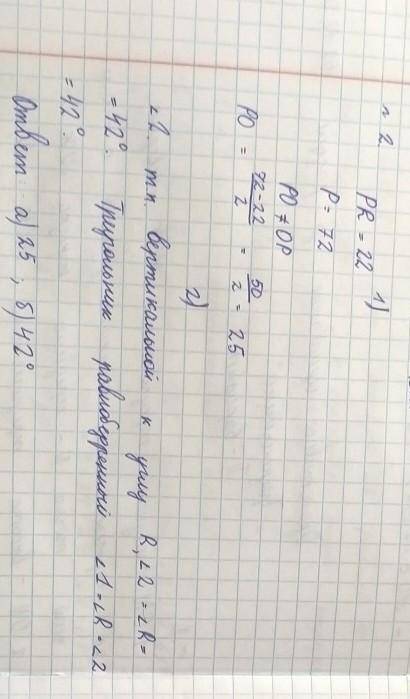 № 2
1)
PR = 22
P = 72
PO ≠ OP
PO = 72-22/2 = 50/2 = 25
2)
∠2 т.к. вертикальной к углу R, ∠2 = ∠R =
= 42°. Треугольник равнобедренный ∠1 = ∠R = ∠2
= 42°.
Ответ: а) 25 ; б) 42°